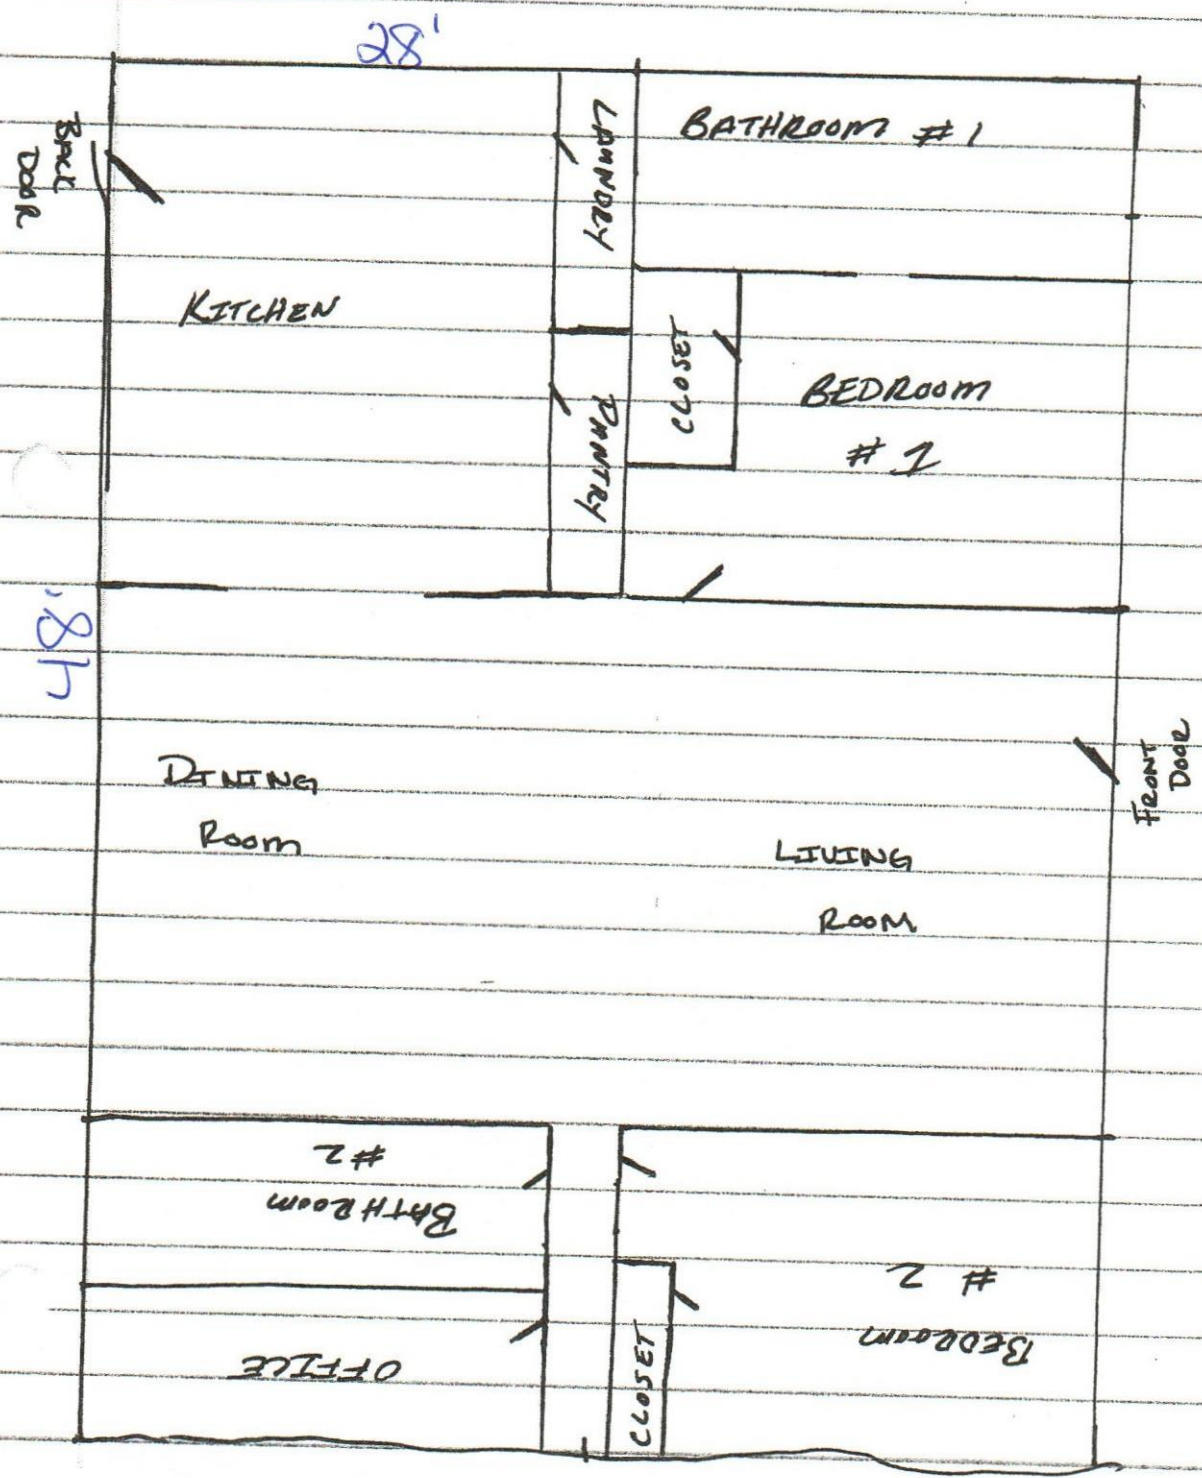 28'
BACK
DOOR
LAUNDRY
BATHROOM #1
KITCHEN
CLOSET
PANTRY
BEDROOM
#1
48'
DINING
ROOM
LIVING
ROOM
FRONT
DOOR
BATHROOM
#2
OFFICE
CLOSET
BEDROOM
#2